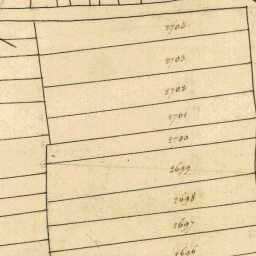 2703
2702
2701
2700
2699
2698
2697
2696